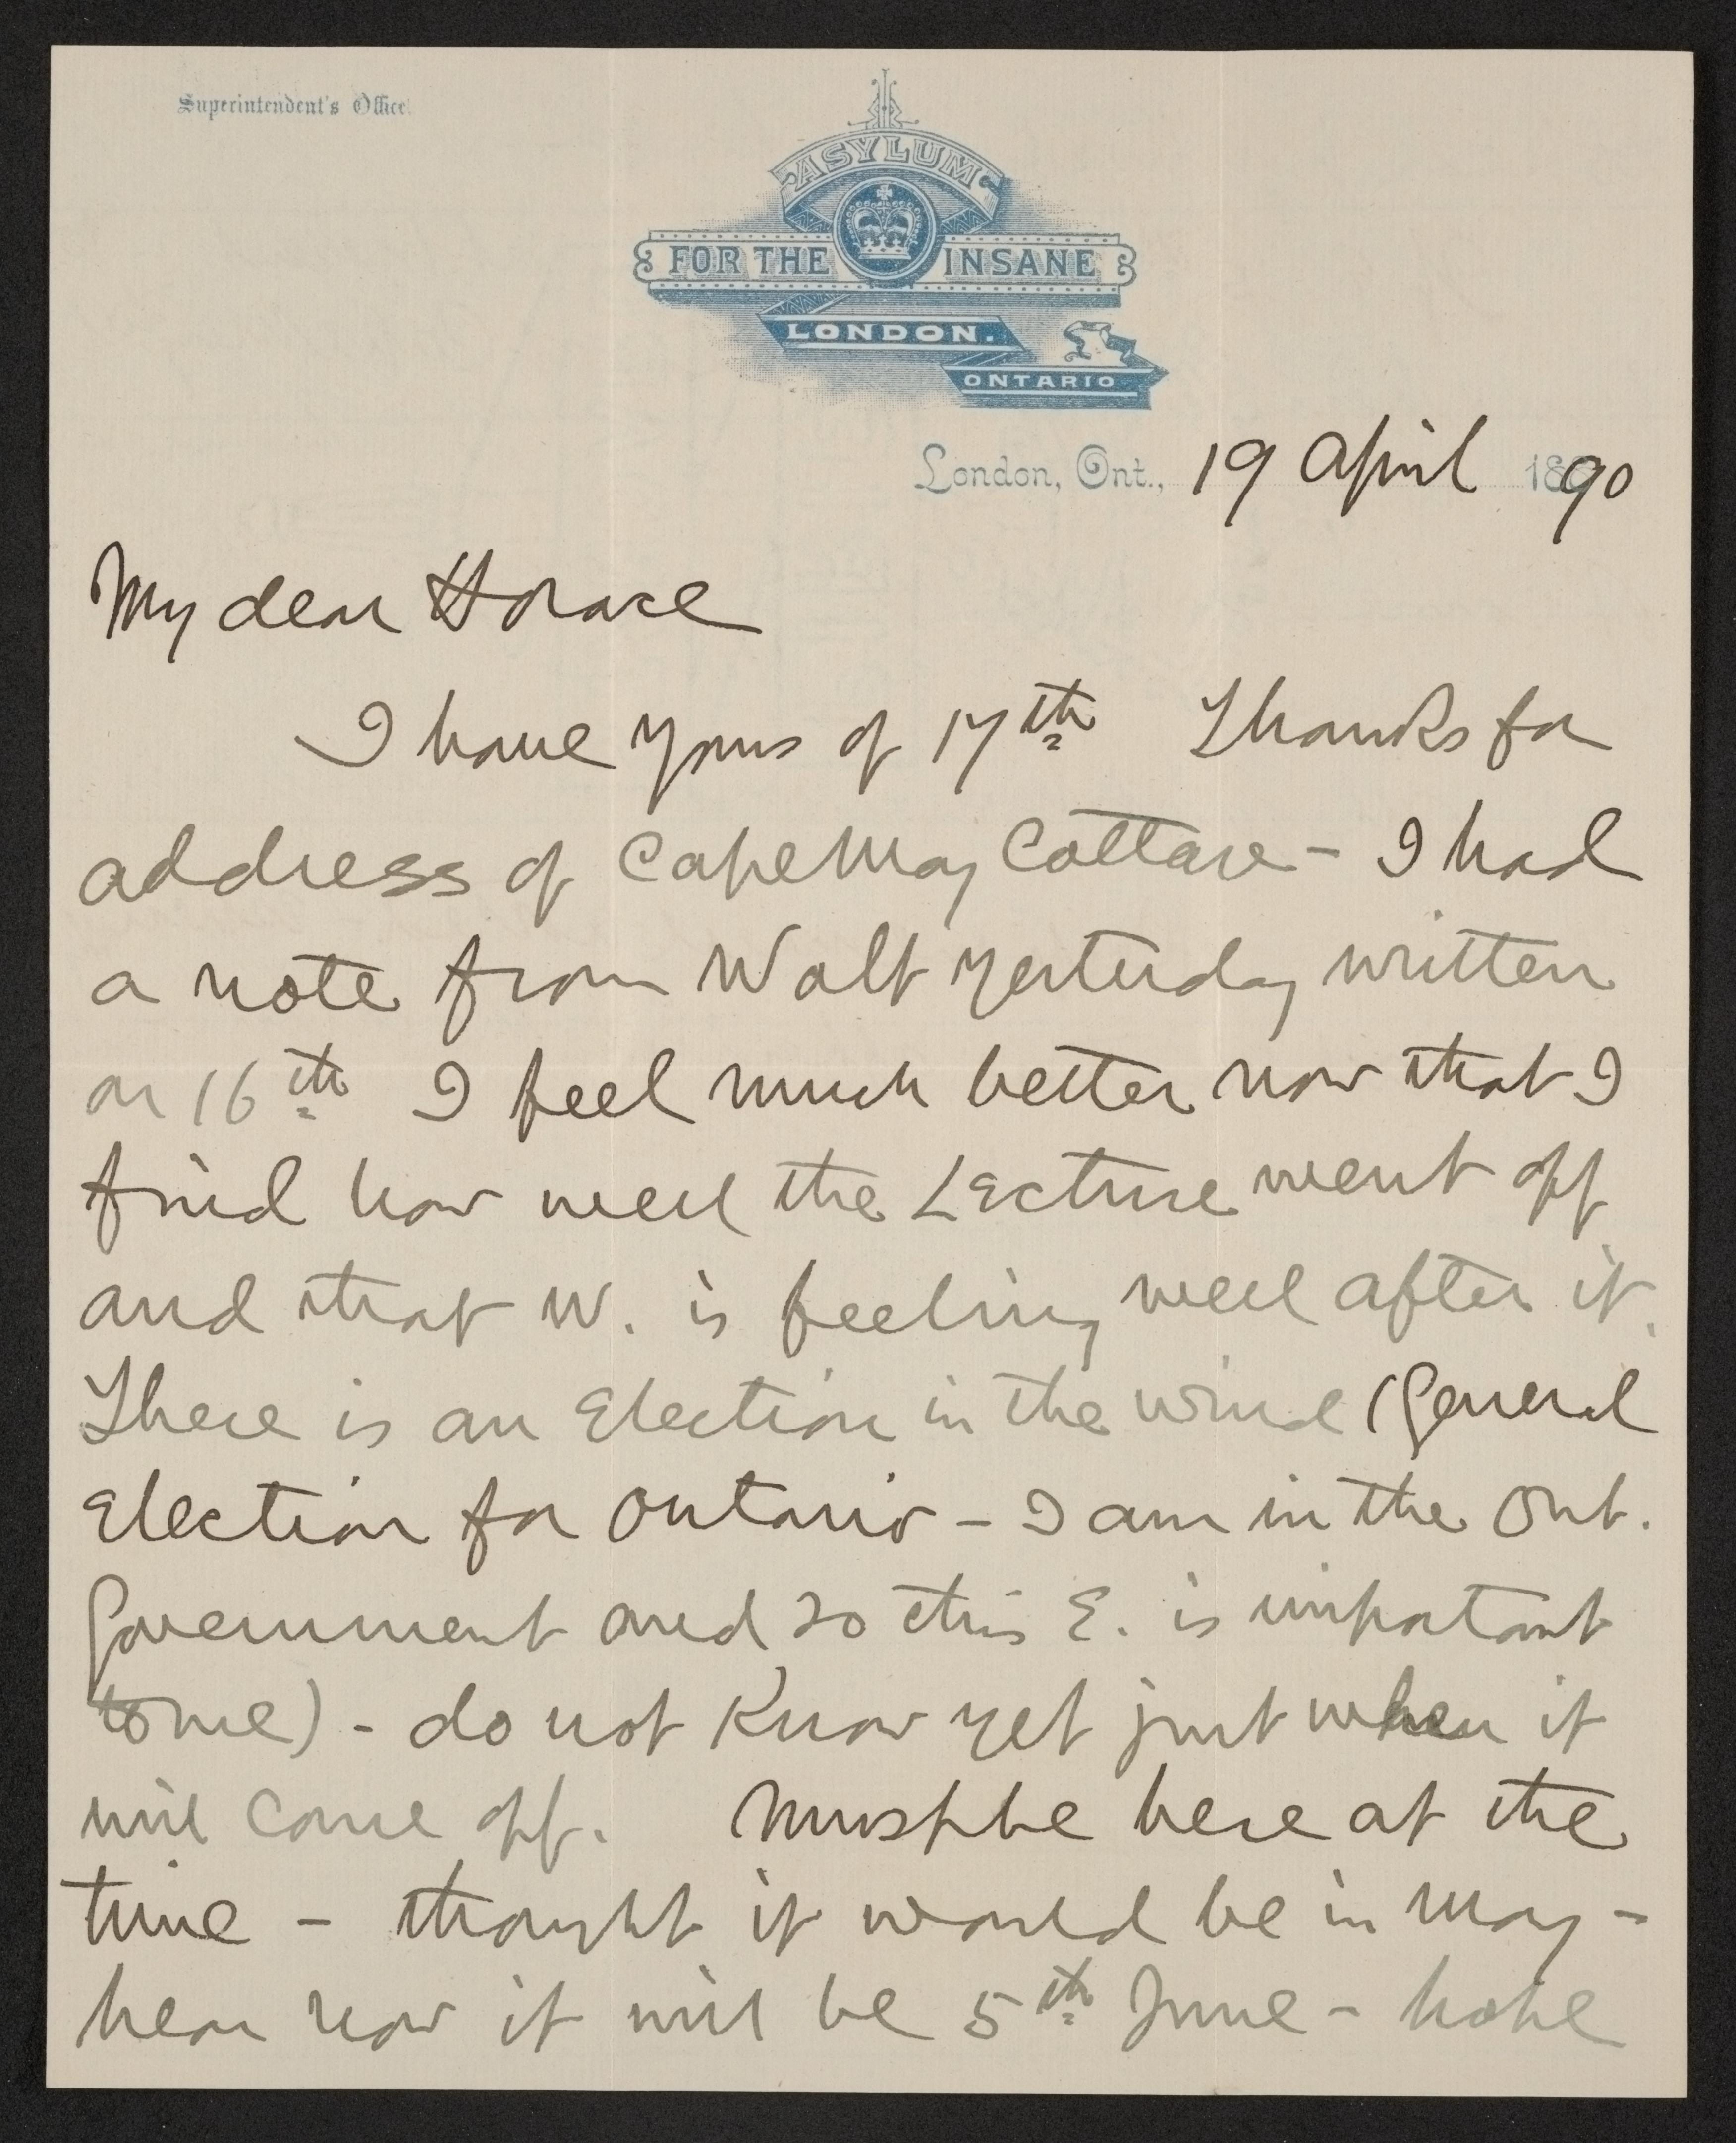 Superintendent's Office.
ASYLUM
FOR THE INSANE
LONDON.
ONTARIO
London, Ont., 19 April 1890
My dear Horace
I have yours of 17th Thanks for
address of Cape May Cottage - I had
a note from Walt yesterday written
on 16th I feel much better now that I
find how well the Lecture went off
and that W. is feeling well after it.
There is an Election in the wind (General
Election for Ontario - I am in the Ont.
Government and so this E. is important
to me) - do not know yet just when it
will come off. Must be here at the
time - thought it would be in May -
hear now it will be 5th June - hope